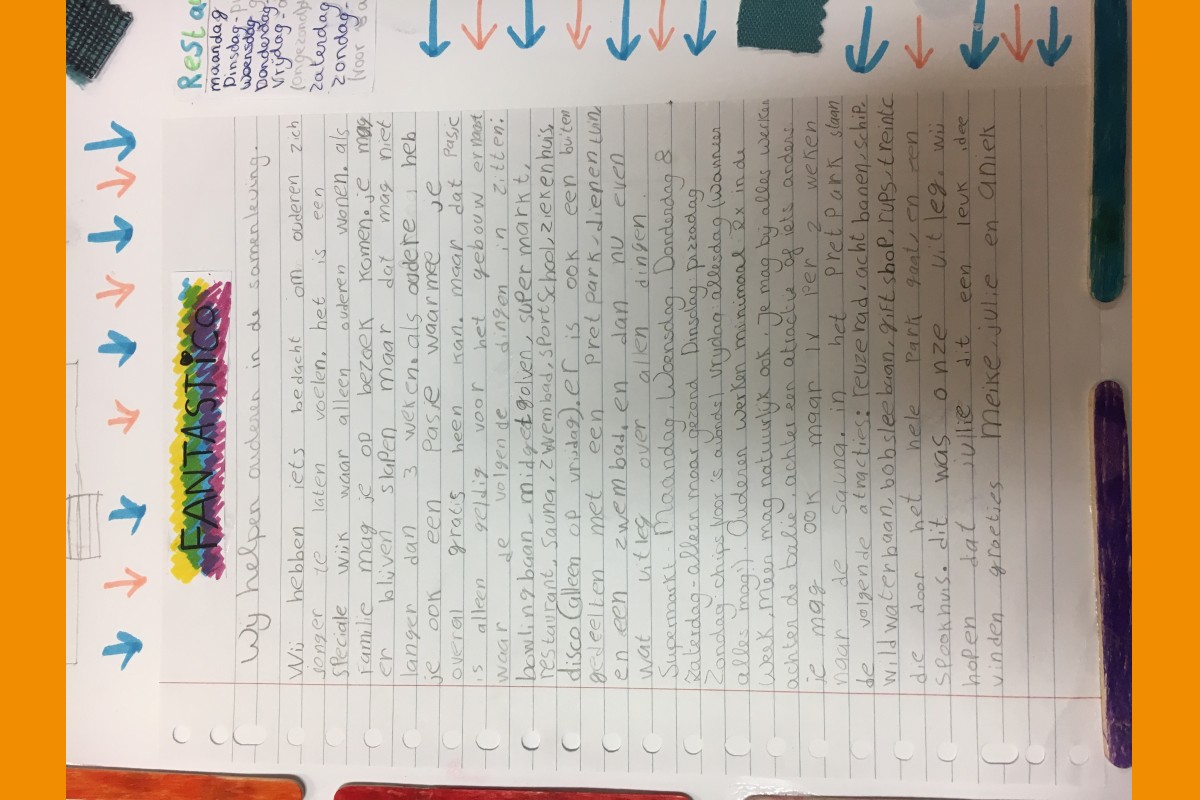 FANTASTica
Wij helpen ouderen in de samenleving.
Wij hebben iets bedacht om ouderen zich
jonger te laten voelen. het is een
speciale wijk waar alleen ouderen wonen. als
Familie mag je op bezoek komen. je mag
er blijven slapen maar dat mag niet
langer dan 3 weken. als oudere heb
je ook een Pasje waarmee je
overal gratis heen kan. maar dat Pasje
is alleen geldig voor het gebouw ernaast
waar de volgende dingen in zitten:
bowlingbaan, midgetgolven, supermarkt,
restaurant, sauna, zwembad, sportschool, ziekenhuis,
disco (alleen op vrijdag). er is ook een buiten
gedeelten met een Pretpark, dierentuin,
en een zwembad. en dan nu even
wat uitleg over allen dingen.
Supermarkt - Maandag, Woensdag, Donderdag &
zaterdag - alleen maar gezond Dinsdag pizzadag
Zondag chips (voor's avonds) Vrijdag: allesdag (wanneer
alles mag!). Ouderen werken minimaal 2x in de
week, meer mag natuurlijk ook. je mag bij alles werken
achter de balie, achter een atractie of iets anders.
je mag ook maar 1x per 2 weken
naar de sauna. in het Pretpark staan
de volgende atracties: reuzerad, achtbanen, schip,
wildwaterbaan, bobsleebaan, giftshop, rups, treintje
die door het hele Park gaat, en een
spookhuis. dit was onze uitleg. wij
hopen dat jullie dit een leuk idee
vinden groetjes Meike, julie en aniek
Resta
maandag
Dinsdag - Pi
woensdag - g
Donderdag
Vrijdag - a
(ongezond)
zaterdag
zondag -
(voor 's a